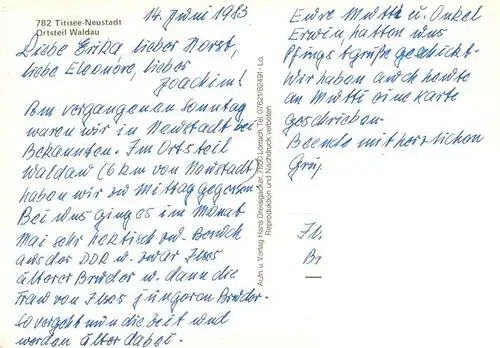 782 Titisee-Neustadt
Ortsteil Waldau
14. Juni 1983
Liebe Erika, lieber Horst,
liebe Eleonore, lieber
Joachim!
Am vergangenen Sonntag
waren wir in Neustadt bei
Bekannten. Im Ortsteil
Waldau (6 km von Neustadt)
haben wir zu Mittag gegessen.
Bei uns ging es im Monat
Mai sehr hektisch zu. Besuch
aus der DDR u. zwar Ilses
älterer Bruder u. dann die
Frau von Ilses jüngeren Bruder.
So vergeht nun die Zeit und
werden älter dabei.
Aufn. u. Verlag Hans Dreisigacker, 7850 Lörrach, Tel. 07621/82491 - Lo.
Reproduktion und Nachdruck verboten
Eure Mutti u. Onkel
Erwin, hatten uns
Pfingstgrüße geschickt.
Wir haben auch heute
an Mutti eine Karte
geschrieben.
Beende mit herzlichen